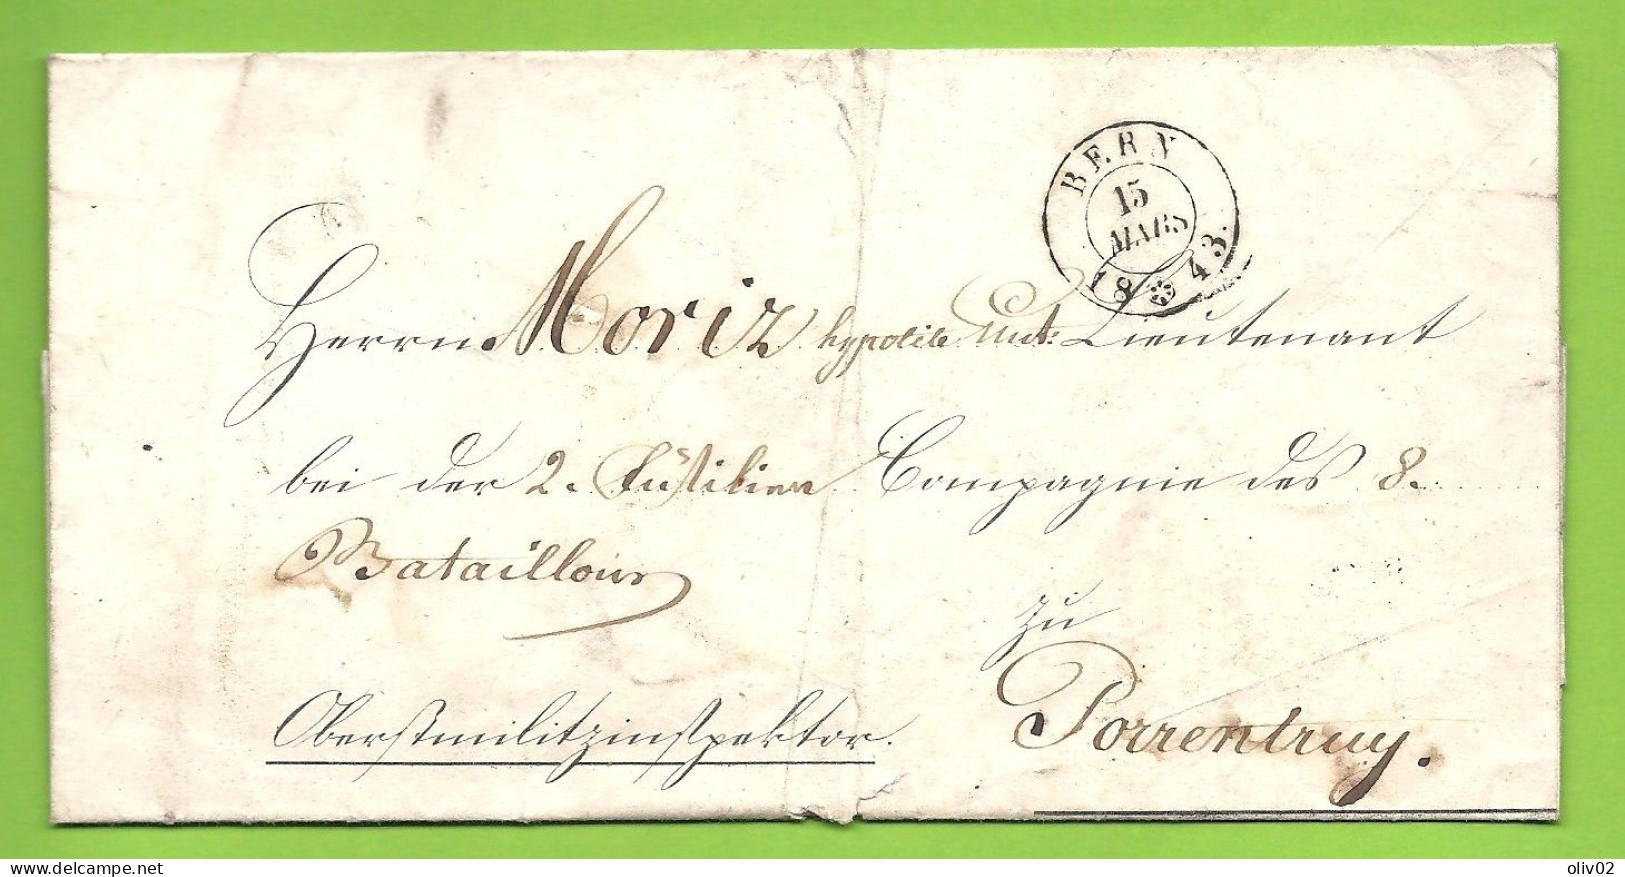 BERN
15
MARS
1843.
Herrn Moriz hypolite Unt: Lieutenant
bei der 2. Füsilier Compagnie des 8.
Bataillons
zu
Oberstmilitzinspektor. Porrentruy.
oliv02